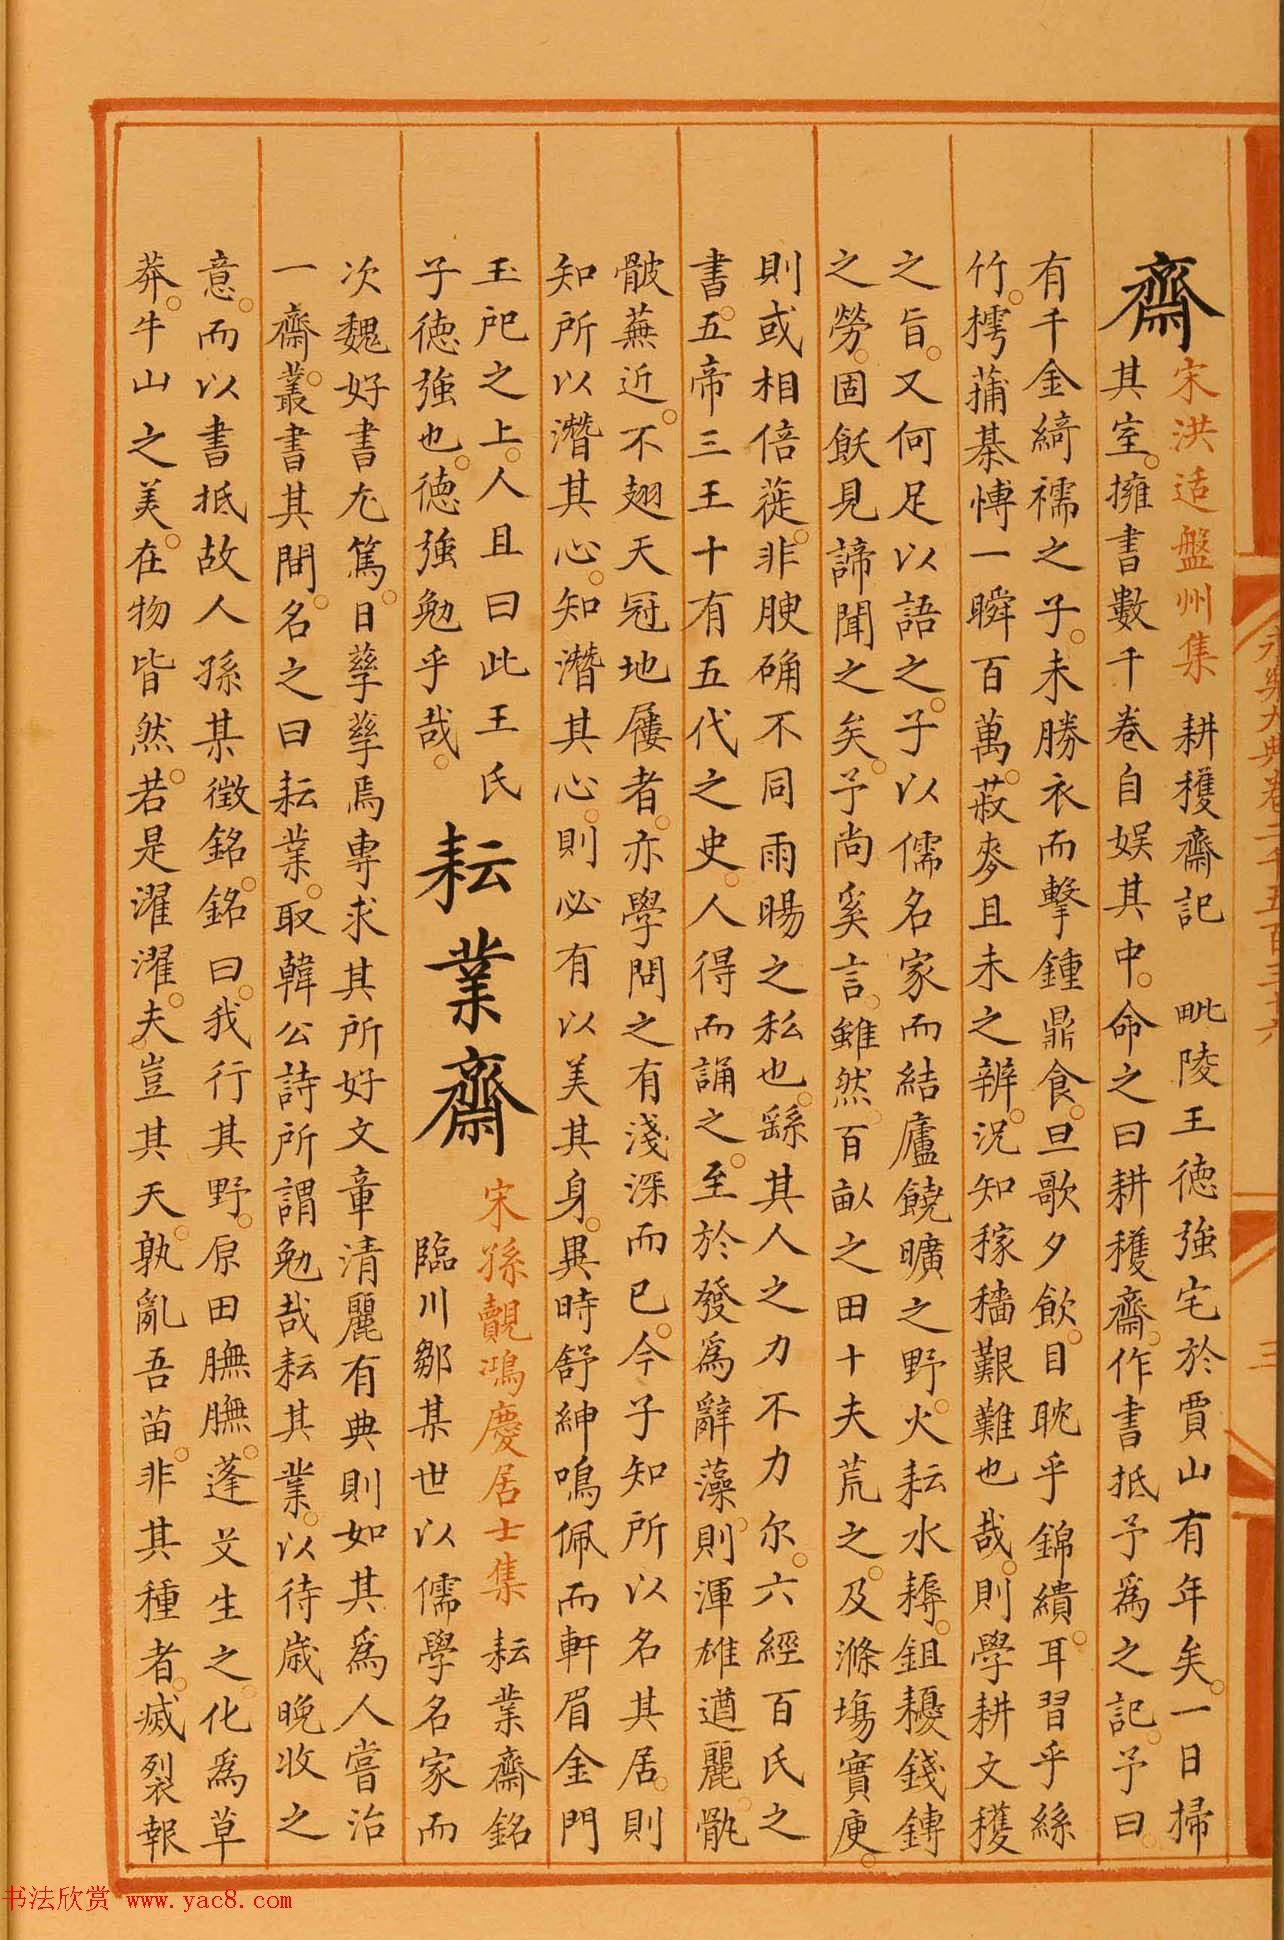 齋
宋洪适盤州集 耕穫齋記 毗陵王德強宅於賈山有年矣一日掃
其室擁書數千卷自娛其中命之曰耕穫齋作書抵予爲之記予曰
有千金綺襦之子未勝衣而擊鍾鼎食旦歌夕飲目眈乎錦繢耳習乎絲
竹樗蒱棊愽一瞬百萬菽麥且未之辨況知稼穡艱難也哉則學耕文穫
之旨又何足以語之子以儒名家而結廬饒曠之野火耘水耨鉏耰錢鏄
之勞固飫見諦聞之矣予尚奚言雖然百畝之田十夫荒之及滌塲實庾
則或相倍蓰非腴确不同雨暘之私也繇其人之力不力尔六經百氏之
書五帝三王十有五代之史人得而誦之至於發爲辭藻則渾雄遒麗骫
骳蕪近不翅天冠地屨者亦學問之有淺深而已今子知所以名其居則
知所以濳其心知濳其心則必有以美其身異時舒紳鳴佩而軒眉金門
玉戺之上人且曰此王氏
子德強也德強勉乎哉
耘業齋
宋孫覿鴻慶居士集 耘業齋銘
臨川鄒某世以儒學名家而
次魏好書尤篤日孳孳焉專求其所好文章清麗有典則如其爲人嘗治
一齋叢書其間名之曰耘業取韓公詩所謂勉哉耘其業以待歲晚收之
意而以書抵故人孫某徵銘銘曰我行其野原田膴膴蓬艾生之化爲草
莽牛山之美在物皆然若是濯濯夫豈其天孰亂吾苗非其種者滅裂報
永樂大典卷二千五百三十六
三
书法欣赏 www.yac8.com